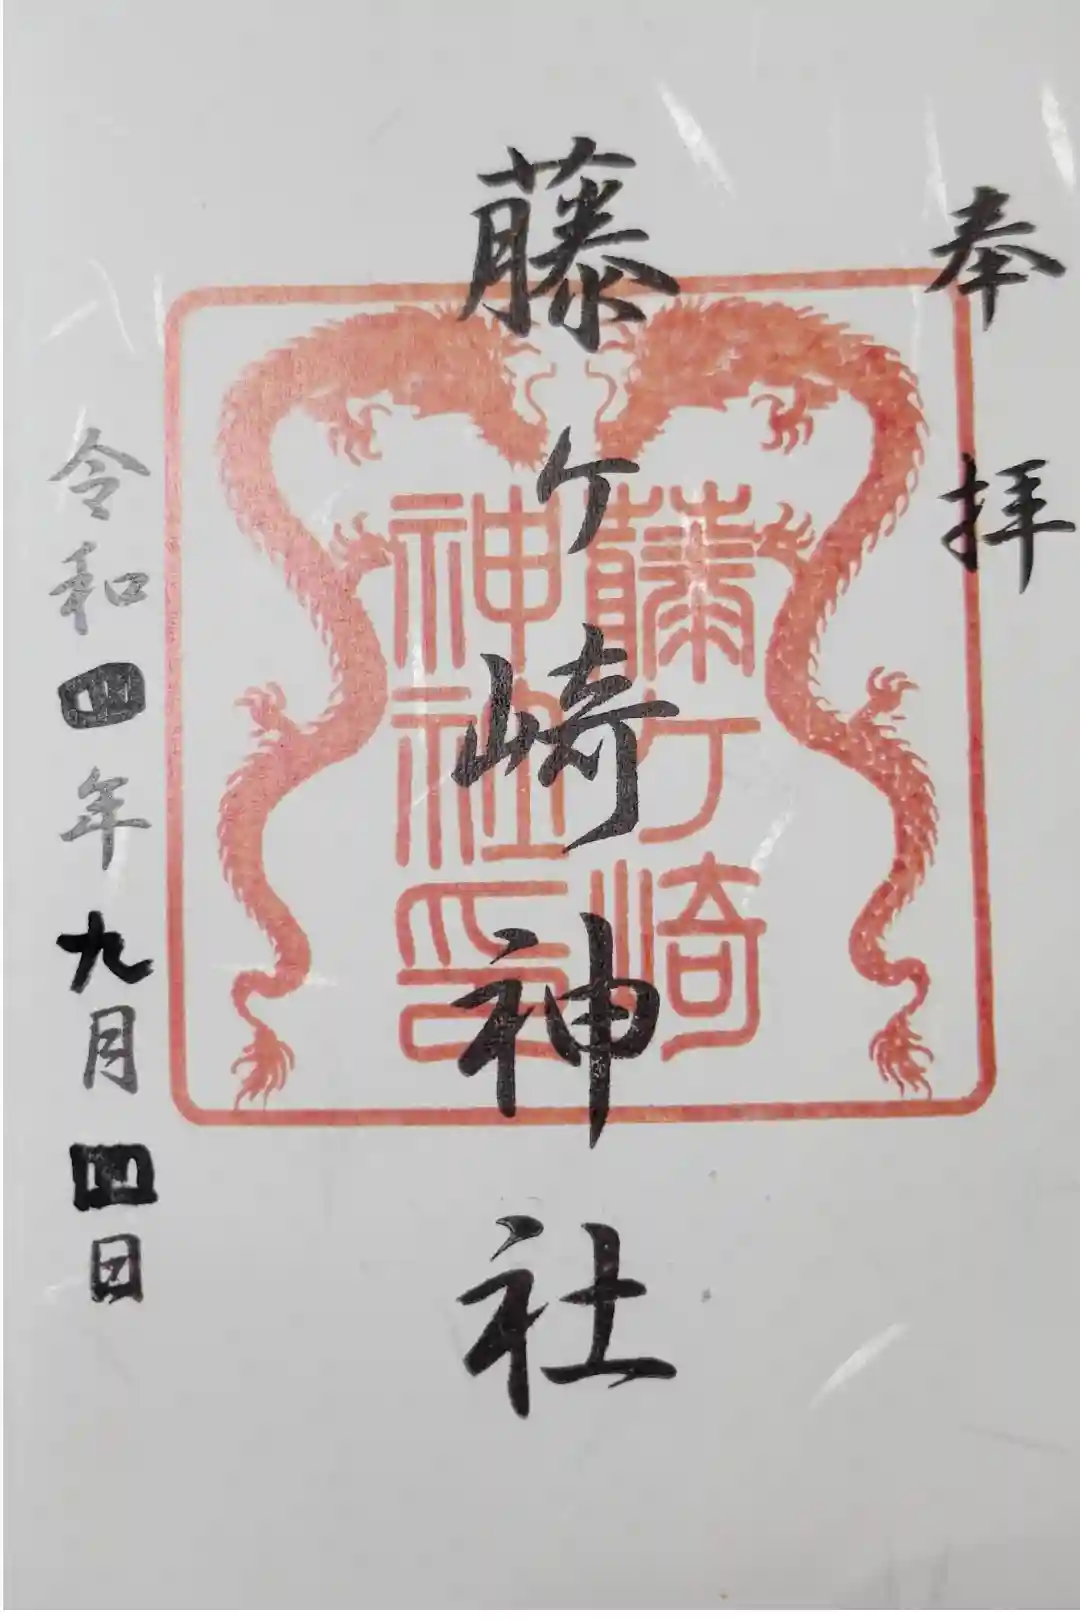 奉拝
藤ヶ崎神社
藤ヶ崎
神社印
令和四年九月四日